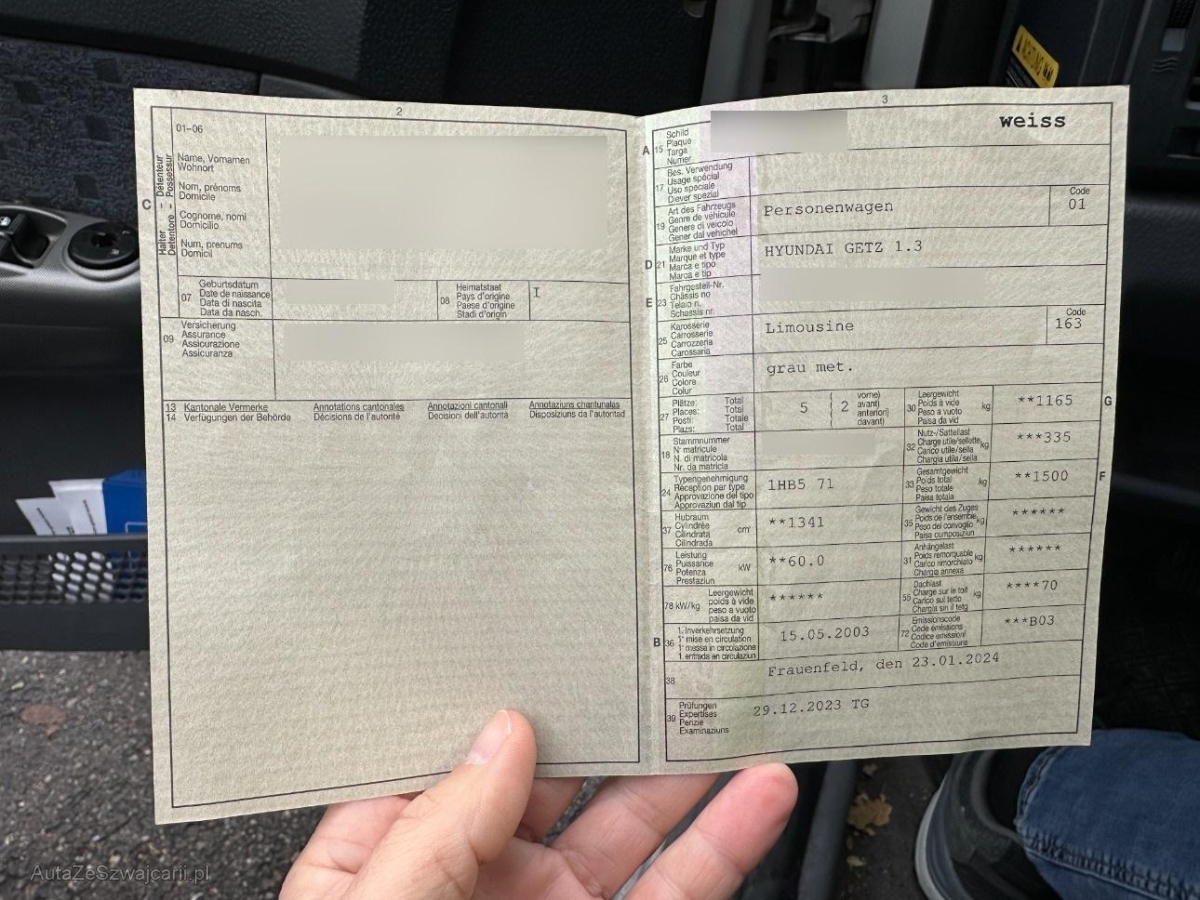 ACHTUNG
2
01–06
Name, Vornamen
Wohnort
Nom, prénoms
Domicile
Cognome, nomi
Domicilio
Num, prenums
Domicil
C
Halter – Détenteur
Detentore – Possessur
07
Geburtsdatum
Date de naissance
Data di nascita
Data da nasch.
08
Heimatstaat
Pays d'origine
Paese d'origine
Stadi d'origin
I
09
Versicherung
Assurance
Assicurazione
Assicuranza
13 Kantonale Vermerke Annotations cantonales Annotazioni cantonali Annotaziuns chantunalas
14 Verfügungen der Behörde Décisions de l'autorité Decisioni dell'autorità Disposiziuns da l'autoritad
3
A 15
Schild
Plaque
Targa
Numer
weiss
17
Bes. Verwendung
Usage spécial
Uso speciale
Diever spezial
19
Art des Fahrzeugs
Genre de véhicule
Genere di veicolo
Gener dal vehichel
Personenwagen
Code
01
D 21
Marke und Typ
Marque et type
Marca e tipo
Marca e tip
HYUNDAI GETZ 1.3
E 23
Fahrgestell-Nr.
Châssis no
Telaio n.
Schassis nr.
25
Karosserie
Carrosserie
Carrozzeria
Carossaria
Limousine
Code
163
26
Farbe
Couleur
Colore
Colur
grau met.
27
Plätze: Total
Places: Total
Posti: Totale
Plazs: Total
5 2
vorne)
avant)
anteriori)
davant)
30
Leergewicht
Poids à vide
Peso a vuoto
Paisa da vid
kg
**1165
G
18
Stammnummer
N° matricule
N. di matricola
Nr. da matricla
32
Nutz-/Sattellast
Charge utile/sellette
Carico utile/sella
Chargia utila/sella
kg
***335
24
Typengenehmigung
Réception par type
Approvazione del tipo
Approvaziun dal tip
1HB5 71
33
Gesamtgewicht
Poids total
Peso totale
Paisa totala
kg
**1500
F
37
Hubraum
Cylindrée
Cilindrata
Cilindrada
cm³
**1341
35
Gewicht des Zuges
Poids de l'ensemble
Peso del convoglio
Paisa cumposiziun
kg
******
76
Leistung
Puissance
Potenza
Prestaziun
kW
**60.0
31
Anhängelast
Poids remorquable
Carico rimorchiato
Chargia annexa
kg
******
78 kW/kg
Leergewicht
poids à vide
peso a vuoto
paisa da vid
******
55
Dachlast
Charge sur le toit
Carico sul tetto
Chargia sin il tetg
kg
****70
B 36
1. Inverkehrsetzung
1re mise en circulation
1a messa in circolazione
1. entrada en circulaziun
15.05.2003
72
Emissionscode
Code émissions
Codice emissioni
Code d'emissiuns
***B03
38
Frauenfeld, den 23.01.2024
39
Prüfungen
Expertises
Perizie
Examinaziuns
29.12.2023 TG
AutaZeSzwajcarii.pl